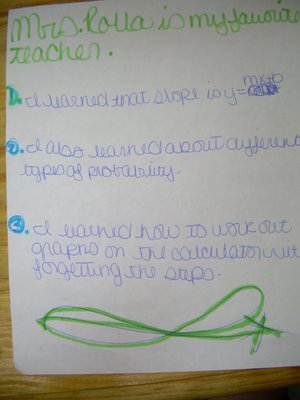 Mrs. Rolla is my favorite
teacher.
1. I learned that slope is y=mx+b
2. I also learned about different
types of probability.
3. I learned how to work out
graphs on the calculator
forgetting the steps.